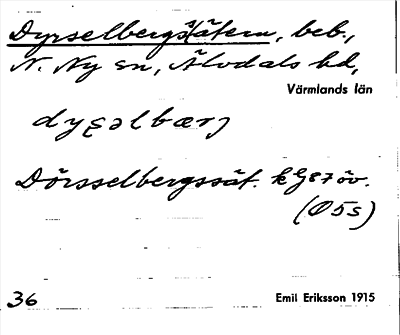 Dyrselbergs/sätern, beb.,
N. Ny sn, Älvdals hd,
Värmlands län
dyʂəlbærj
Dörsselbergssät. kG87öv.
(Ö5s)
36
Emil Eriksson 1915